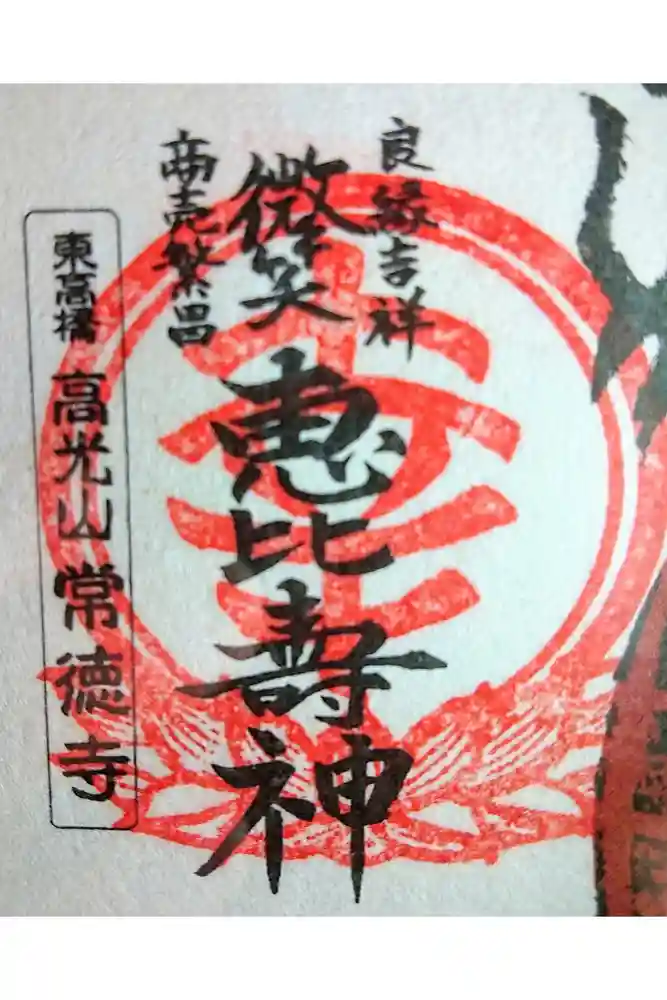 良縁吉祥
微笑恵比寿神
商売繁昌
東高橋 高光山常徳寺